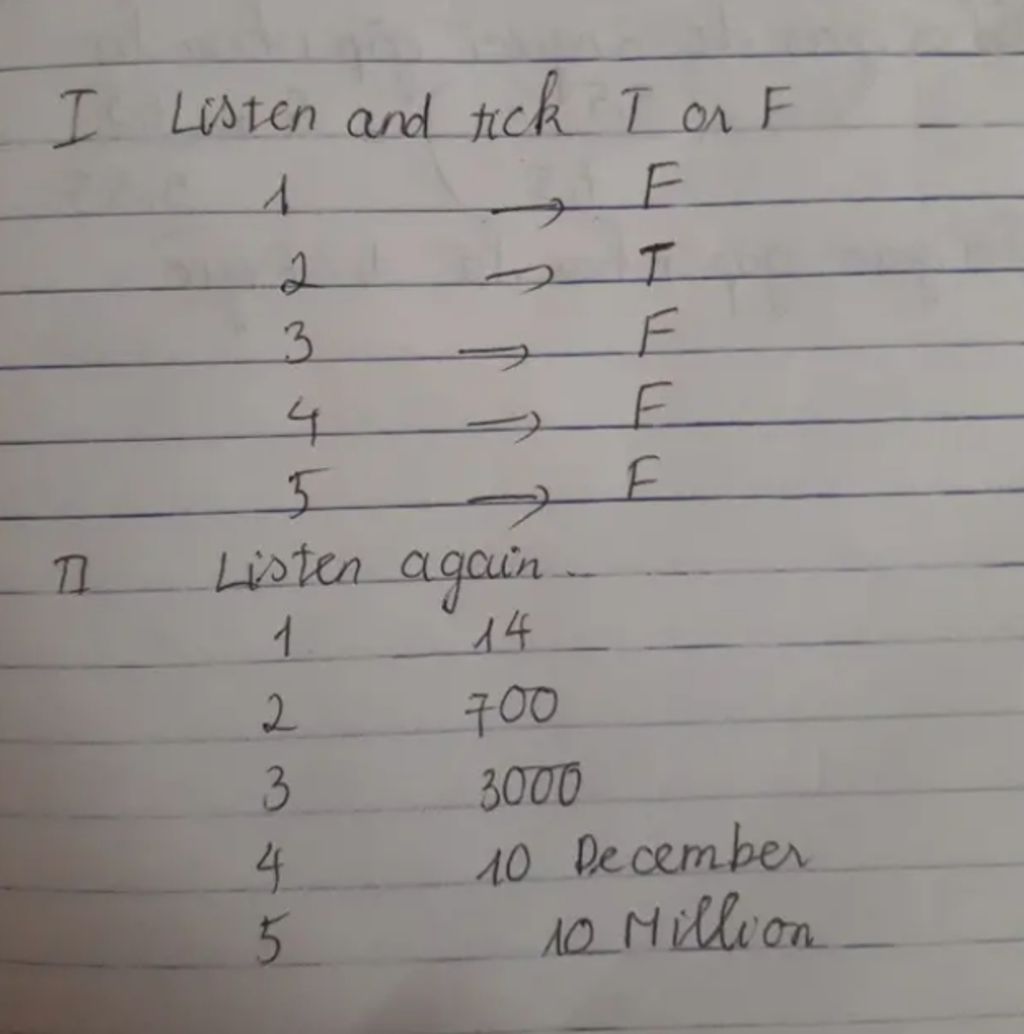 I Listen and tick T or F
1 → F
2 → T
3 → F
4 → F
5 → F
II Listen again
1 14
2 700
3 3000
4 10 December
5 10 Million